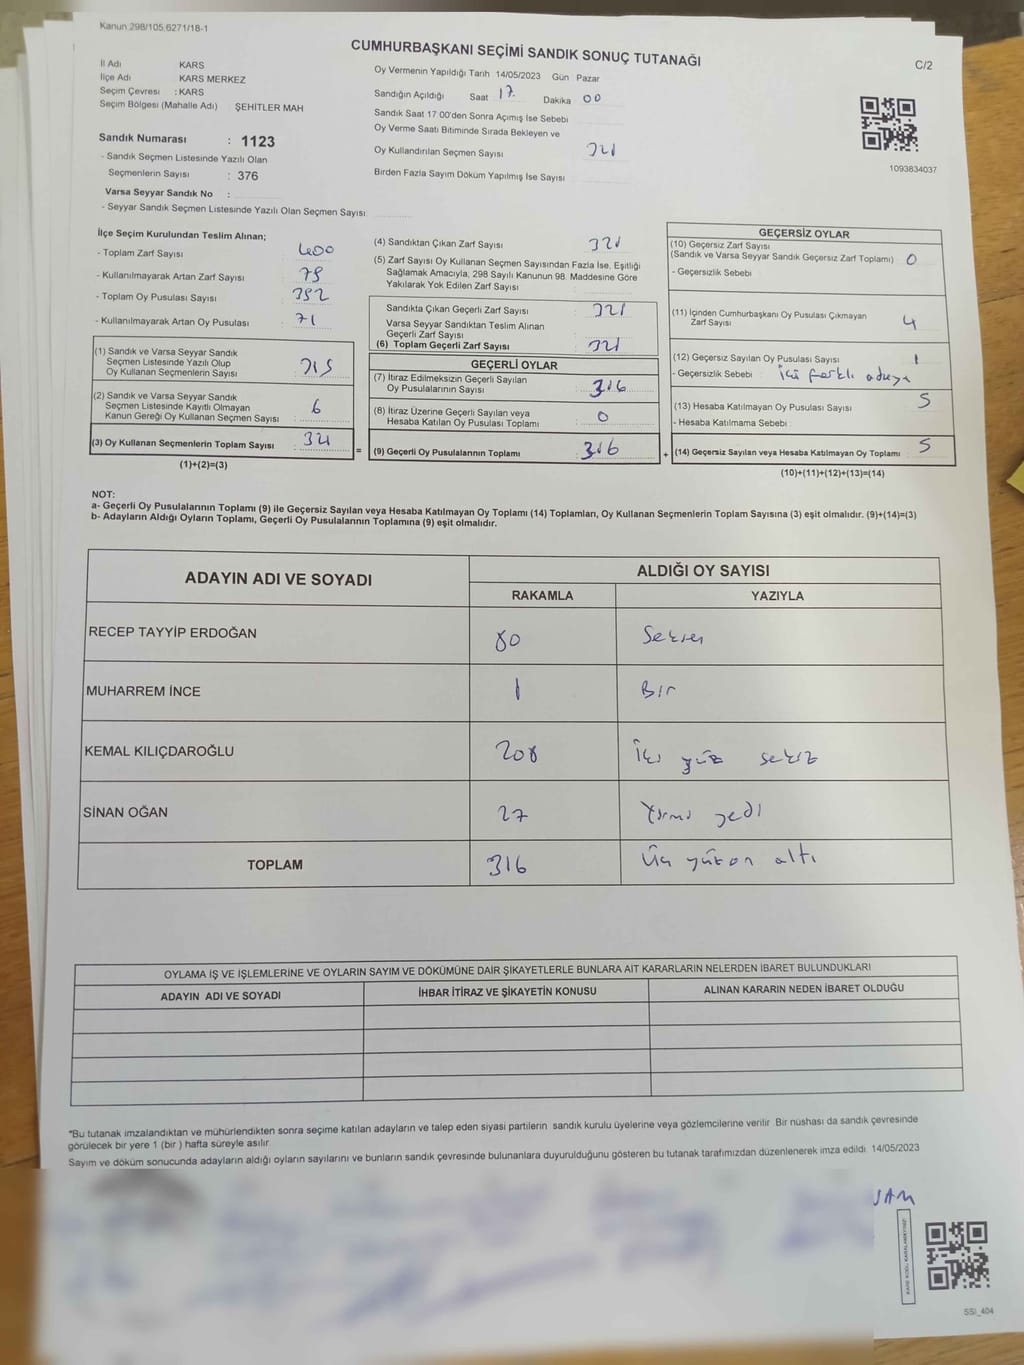 Kanun 298/105,6271/18-1
CUMHURBAŞKANI SEÇİMİ SANDIK SONUÇ TUTANAĞI
C/2
İl Adı KARS
İlçe Adı KARS MERKEZ
Seçim Çevresi : KARS
Seçim Bölgesi (Mahalle Adı) ŞEHİTLER MAH
Sandık Numarası : 1123
- Sandık Seçmen Listesinde Yazılı Olan
Seçmenlerin Sayısı : 376
Varsa Seyyar Sandık No :
- Seyyar Sandık Seçmen Listesinde Yazılı Olan Seçmen Sayısı
Oy Vermenin Yapıldığı Tarih 14/05/2023 Gün Pazar
Sandığın Açıldığı Saat 17 Dakika 00
Sandık Saat 17 00'den Sonra Açımış İse Sebebi
Oy Verme Saati Bitiminde Sırada Bekleyen ve
Oy Kullandırılan Seçmen Sayısı 321
Birden Fazla Sayım Döküm Yapılmış İse Sayısı
1093834037
İlçe Seçim Kurulundan Teslim Alınan;
- Toplam Zarf Sayısı 400
- Kullanılmayarak Artan Zarf Sayısı 79
- Toplam Oy Pusulası Sayısı 392
- Kullanılmayarak Artan Oy Pusulası 71
(1) Sandık ve Varsa Seyyar Sandık
Seçmen Listesinde Yazılı Olup
Oy Kullanan Seçmenlerin Sayısı 315
(2) Sandık ve Varsa Seyyar Sandık
Seçmen Listesinde Kayıtlı Olmayan
Kanun Gereği Oy Kullanan Seçmen Sayısı 6
(3) Oy Kullanan Seçmenlerin Toplam Sayısı 321
(1)+(2)=(3)
(4) Sandıktan Çıkan Zarf Sayısı 321
(5) Zarf Sayısı Oy Kullanan Seçmen Sayısından Fazla İse, Eşitliği
Sağlamak Amacıyla, 298 Sayılı Kanunun 98. Maddesine Göre
Yakılarak Yok Edilen Zarf Sayısı
Sandıkta Çıkan Geçerli Zarf Sayısı 321
Varsa Seyyar Sandıktan Teslim Alınan
Geçerli Zarf Sayısı
(6) Toplam Geçerli Zarf Sayısı 321
GEÇERLİ OYLAR
(7) İtiraz Edilmeksizin Geçerli Sayılan
Oy Pusulalarının Sayısı 316
(8) İtiraz Üzerine Geçerli Sayılan veya
Hesaba Katılan Oy Pusulası Toplamı 0
= (9) Geçerli Oy Pusulalarının Toplamı 316
GEÇERSİZ OYLAR
(10) Geçersiz Zarf Sayısı
(Sandık ve Varsa Seyyar Sandık Geçersiz Zarf Toplamı) 0
- Geçersizlik Sebebi
(11) İçinden Cumhurbaşkanı Oy Pusulası Çıkmayan
Zarf Sayısı 4
(12) Geçersiz Sayılan Oy Pusulası Sayısı 1
- Geçersizlik Sebebi iki farklı adaya
(13) Hesaba Katılmayan Oy Pusulası Sayısı 5
- Hesaba Katılmama Sebebi
+ (14) Geçersiz Sayılan veya Hesaba Katılmayan Oy Toplamı 5
(10)+(11)+(12)+(13)=(14)
NOT:
a- Geçerli Oy Pusulalarının Toplamı (9) ile Geçersiz Sayılan veya Hesaba Katılmayan Oy Toplamı (14) Toplamları, Oy Kullanan Seçmenlerin Toplam Sayısına (3) eşit olmalıdır. (9)+(14)=(3)
b- Adayların Aldığı Oyların Toplamı, Geçerli Oy Pusulalarının Toplamına (9) eşit olmalıdır.
ADAYIN ADI VE SOYADI ALDIĞI OY SAYISI
RAKAMLA YAZIYLA
RECEP TAYYİP ERDOĞAN 80 Seksen
MUHARREM İNCE 1 Bir
KEMAL KILIÇDAROĞLU 208 İki yüz sekiz
SİNAN OĞAN 27 Yirmi yedi
TOPLAM 316 Üç yüz on altı
OYLAMA İŞ VE İŞLEMLERİNE VE OYLARIN SAYIM VE DÖKÜMÜNE DAİR ŞİKAYETLERLE BUNLARA AİT KARARLARIN NELERDEN İBARET BULUNDUKLARI
ADAYIN ADI VE SOYADI İHBAR İTİRAZ VE ŞİKAYETİN KONUSU ALINAN KARARIN NEDEN İBARET OLDUĞU
*Bu tutanak imzalandıktan ve mühürlendikten sonra seçime katılan adayların ve talep eden siyasi partilerin sandık kurulu üyelerine veya gözlemcilerine verilir Bir nüshası da sandık çevresinde
görülecek bir yere 1 (bir ) hafta süreyle asılır
Sayım ve döküm sonucunda adayların aldığı oyların sayılarını ve bunların sandık çevresinde bulunanlara duyurulduğunu gösteren bu tutanak tarafımızdan düzenlenerek imza edildi 14/05/2023
KARE KODU KARALAMAYINIZ!
SSI_404